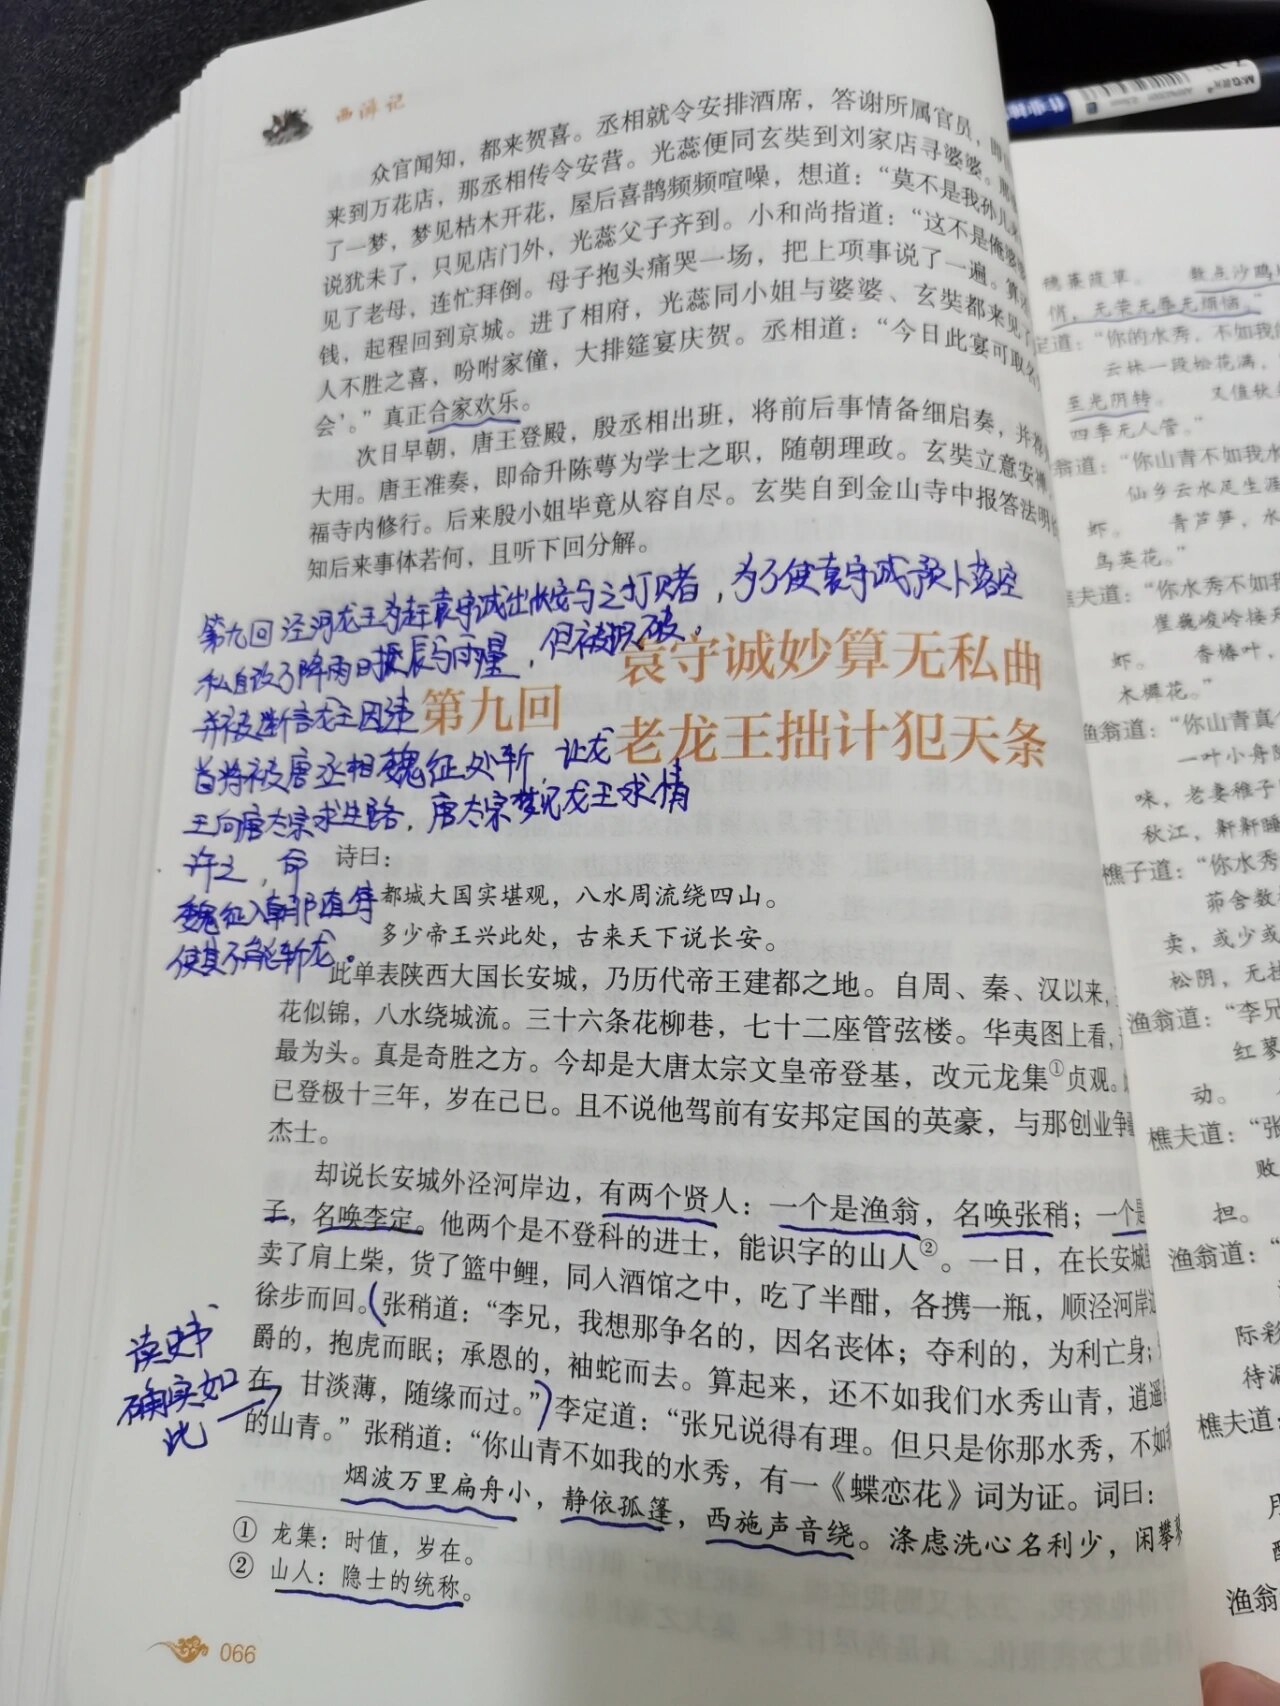 西游记
众官闻知，都来贺喜。丞相就令安排酒席，答谢所属官员，即
来到万花店，那丞相传令安营。光蕊便同玄奘到刘家店寻婆婆。那
了一梦，梦见枯木开花，屋后喜鹊频频喧噪，想道：“莫不是我孙儿
说犹未了，只见店门外，光蕊父子齐到。小和尚指道：“这不是俺婆婆
见了老母，连忙拜倒。母子抱头痛哭一场，把上项事说了一遍。算
钱，起程回到京城。进了相府，光蕊同小姐与婆婆、玄奘都来见了
人不胜之喜，吩咐家僮，大排筵宴庆贺。丞相道：“今日此宴可取名
会’。”真正合家欢乐。
次日早朝，唐王登殿，殷丞相出班，将前后事情备细启奏，并荐
大用。唐王准奏，即命升陈萼为学士之职，随朝理政。玄奘立意安禅，
福寺内修行。后来殷小姐毕竟从容自尽。玄奘自到金山寺中报答法明长
知后来事体若何，且听下回分解。
第九回 泾河龙王为赶袁守诚出长安与之打赌，为了使袁守诚预卜落空
私自改了降雨时辰与雨量，但被识破。
并被断言龙王因违
旨将被唐丞相魏征处斩，让龙
王向唐太宗求生路，唐太宗梦见龙王求情
许之，命
魏征入朝值
使其不能斩龙。
第九回
袁守诚妙算无私曲
老龙王拙计犯天条
诗曰：
都城大国实堪观，八水周流绕四山。
多少帝王兴此处，古来天下说长安。
此单表陕西大国长安城，乃历代帝王建都之地。自周、秦、汉以来，
花似锦，八水绕城流。三十六条花柳巷，七十二座管弦楼。华夷图上看，
最为头。真是奇胜之方。今却是大唐太宗文皇帝登基，改元龙集①贞观。
已登极十三年，岁在己巳。且不说他驾前有安邦定国的英豪，与那创业争
杰士。
却说长安城外泾河岸边，有两个贤人：一个是渔翁，名唤张稍；一个是
子，名唤李定。他两个是不登科的进士，能识字的山人②。一日，在长安城
卖了肩上柴，货了篮中鲤，同入酒馆之中，吃了半酣，各携一瓶，顺泾河岸边
徐步而回。张稍道：“李兄，我想那争名的，因名丧体；夺利的，为利亡身；
爵的，抱虎而眠；承恩的，袖蛇而去。算起来，还不如我们水秀山青，逍遥
在，甘淡薄，随缘而过。”李定道：“张兄说得有理。但只是你那水秀，不如我
的山青。”张稍道：“你山青不如我的水秀，有一《蝶恋花》词为证。词曰：
烟波万里扁舟小，静依孤篷，西施声音绕。涤虑洗心名利少，闲攀
读史书
确实如
此
① 龙集：时值，岁在。
② 山人：隐士的统称。
066
穗蒹葭草。 数点沙鸥
情，无荣无辱无烦恼。”
定道：“你的水秀，不如我
云林一段松花满，
至光阴转。 又值秋
四季无人管。”
翁道：“你山青不如我水
仙乡云水足生涯
虾。 青芦笋，水
鸟英花。”
樵夫道：“你水秀不如我
崔巍峻岭接天
虾。 香椿叶，
木樨花。”
渔翁道：“你山青真
一叶小舟随
味，老妻稚子
秋江，鼾鼾睡
樵子道：“你水秀
茆舍数
卖，或少或
松阴，无挂
渔翁道：“李兄
红蓼
动。
樵夫道：“张
败
担。
渔翁道：“
际彩
待满
樵夫道：
月
渔翁
M&G